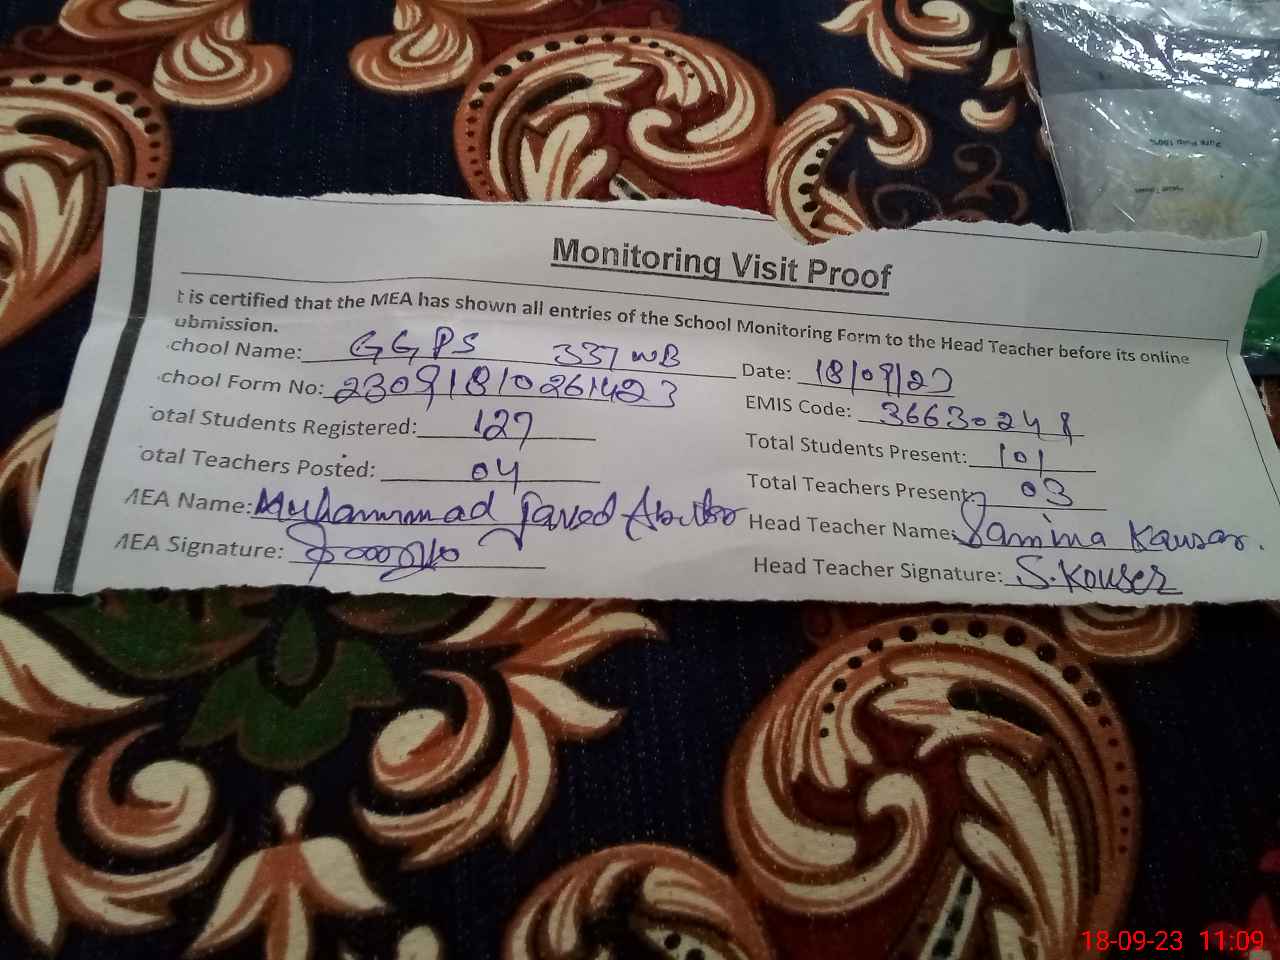 Monitoring Visit Proof
t is certified that the MEA has shown all entries of the School Monitoring Form to the Head Teacher before its online
ubmission.
chool Name: GGPS 337 WB Date: 18/09/23
chool Form No: 23091810261423 EMIS Code: 36630248
otal Students Registered: 127 Total Students Present: 101
otal Teachers Posted: 04 Total Teachers Present: 03
MEA Name: Muhammad Javed Head Teacher Name: Samina Kausar.
MEA Signature: Head Teacher Signature: S.Kouser
18-09-23 11:09